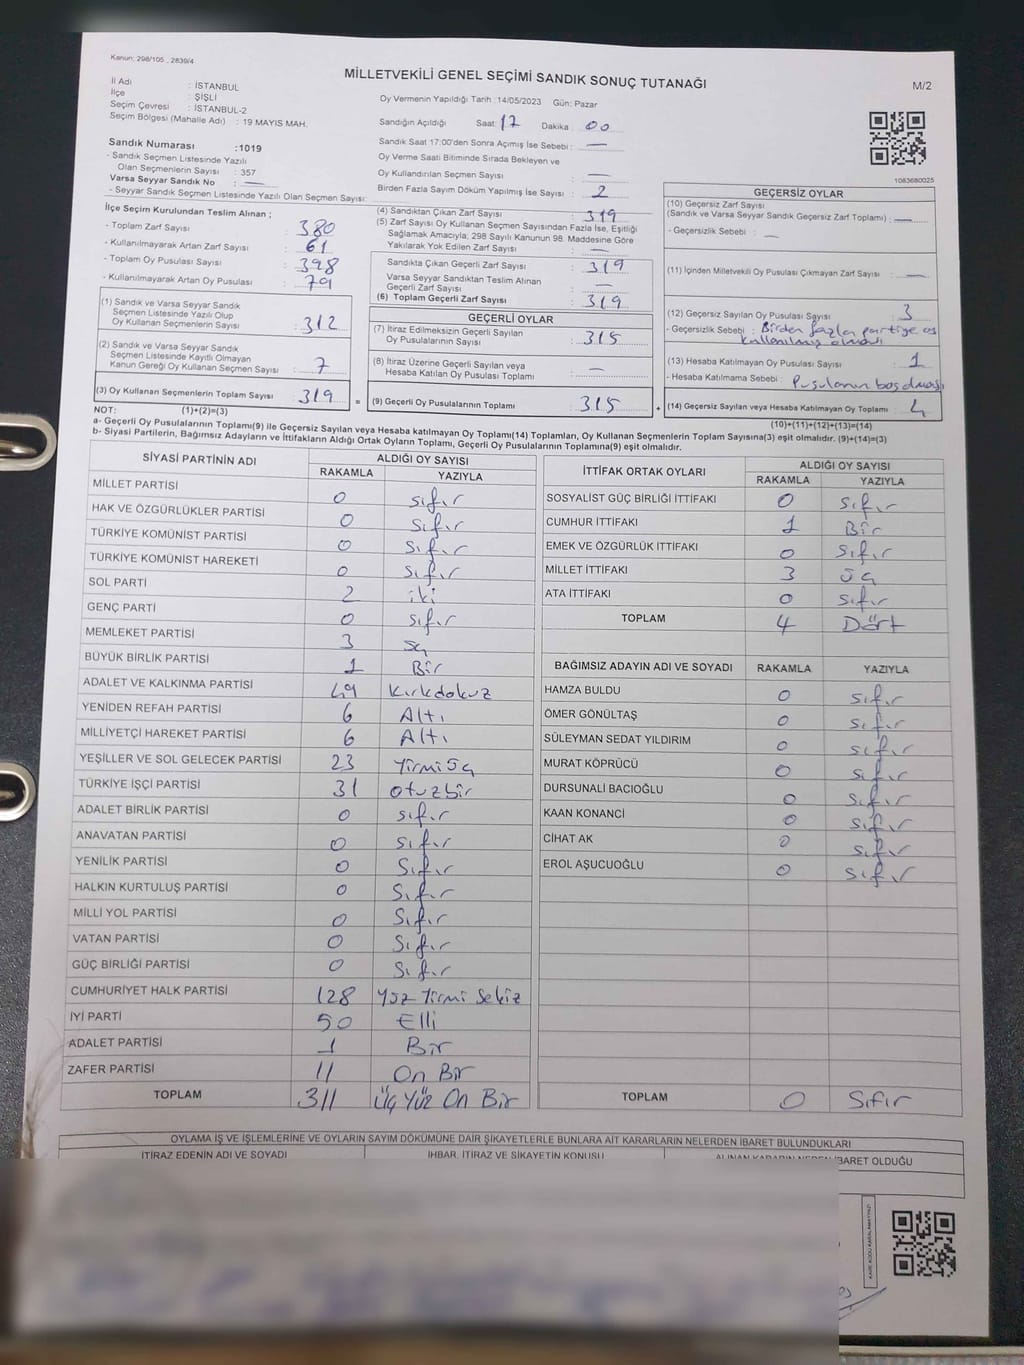 Kanun; 298/105 , 2839/4
MİLLETVEKİLİ GENEL SEÇİMİ SANDIK SONUÇ TUTANAĞI
M/2
İl Adı : İSTANBUL
İlçe : ŞİŞLİ
Seçim Çevresi : İSTANBUL-2
Seçim Bölgesi (Mahalle Adı) : 19 MAYIS MAH.
Oy Vermenin Yapıldığı Tarih :14/05/2023 Gün: Pazar
Sandığın Açıldığı Saat 17 Dakika 00
Sandık Numarası :1019
- Sandık Seçmen Listesinde Yazılı
Olan Seçmenlerin Sayısı : 357
Varsa Seyyar Sandık No : —
- Seyyar Sandık Seçmen Listesinde Yazılı Olan Seçmen Sayısı:
Sandık Saat 17:00'den Sonra Açmış İse Sebebi : —
Oy Verme Saati Bitiminde Sırada Bekleyen ve
Oy Kullandırılan Seçmen Sayısı : —
Birden Fazla Sayım Döküm Yapılmış İse Sayısı : 2
1083680025
İlçe Seçim Kurulundan Teslim Alınan ;
- Toplam Zarf Sayısı : 380
- Kullanılmayarak Artan Zarf Sayısı : 61
- Toplam Oy Pusulası Sayısı : 398
- Kullanılmayarak Artan Oy Pusulası : 79
(1) Sandık ve Varsa Seyyar Sandık
Seçmen Listesinde Yazılı Olup
Oy Kullanan Seçmenlerin Sayısı : 312
(2) Sandık ve Varsa Seyyar Sandık
Seçmen Listesinde Kayıtlı Olmayan
Kanun Gereği Oy Kullanan Seçmen Sayısı : 7
(3) Oy Kullanan Seçmenlerin Toplam Sayısı : 319
(4) Sandıktan Çıkan Zarf Sayısı : 319
(5) Zarf Sayısı Oy Kullanan Seçmen Sayısından Fazla İse, Eşitliği
Sağlamak Amacıyla; 298 Sayılı Kanunun 98. Maddesine Göre
Yakılarak Yok Edilen Zarf Sayısı : —
Sandıkta Çıkan Geçerli Zarf Sayısı : 319
Varsa Seyyar Sandıktan Teslim Alınan
Geçerli Zarf Sayısı : —
(6) Toplam Geçerli Zarf Sayısı : 319
GEÇERLİ OYLAR
(7) İtiraz Edilmeksizin Geçerli Sayılan
Oy Pusulalarının Sayısı : 315
(8) İtiraz Üzerine Geçerli Sayılan veya
Hesaba Katılan Oy Pusulası Toplamı : —
= (9) Geçerli Oy Pusulalarının Toplamı : 315
GEÇERSİZ OYLAR
(10) Geçersiz Zarf Sayısı
(Sandık ve Varsa Seyyar Sandık Geçersiz Zarf Toplamı) : —
- Geçersizlik Sebebi : —
(11) İçinden Milletvekili Oy Pusulası Çıkmayan Zarf Sayısı : —
(12) Geçersiz Sayılan Oy Pusulası Sayısı : 3
- Geçersizlik Sebebi : Birden fazla partiye oy
kullanılmış olması
(13) Hesaba Katılmayan Oy Pusulası Sayısı : 1
- Hesaba Katılmama Sebebi : Pusulanın boş olması
+ (14) Geçersiz Sayılan veya Hesaba Katılmayan Oy Toplamı : 4
NOT: (1)+(2)=(3)
(10)+(11)+(12)+(13)=(14)
a- Geçerli Oy Pusulalarının Toplamı(9) ile Geçersiz Sayılan veya Hesaba katılmayan Oy Toplamı(14) Toplamları, Oy Kullanan Seçmenlerin Toplam Sayısına(3) eşit olmalıdır. (9)+(14)=(3)
b- Siyasi Partilerin, Bağımsız Adayların ve İttifakların Aldığı Ortak Oyların Toplamı, Geçerli Oy Pusulalarının Toplamına(9) eşit olmalıdır.
SİYASİ PARTİNİN ADI ALDIĞI OY SAYISI
RAKAMLA YAZIYLA
MİLLET PARTİSİ 0 sıfır
HAK VE ÖZGÜRLÜKLER PARTİSİ 0 sıfır
TÜRKİYE KOMÜNİST PARTİSİ 0 sıfır
TÜRKİYE KOMÜNİST HAREKETİ 0 sıfır
SOL PARTİ 2 iki
GENÇ PARTİ 0 sıfır
MEMLEKET PARTİSİ 3 üç
BÜYÜK BİRLİK PARTİSİ 1 Bir
ADALET VE KALKINMA PARTİSİ 49 kırkdokuz
YENİDEN REFAH PARTİSİ 6 Altı
MİLLİYETÇİ HAREKET PARTİSİ 6 Altı
YEŞİLLER VE SOL GELECEK PARTİSİ 23 Yirmiüç
TÜRKİYE İŞÇİ PARTİSİ 31 otuzbir
ADALET BİRLİK PARTİSİ 0 sıfır
ANAVATAN PARTİSİ 0 sıfır
YENİLİK PARTİSİ 0 Sıfır
HALKIN KURTULUŞ PARTİSİ 0 Sıfır
MİLLİ YOL PARTİSİ 0 Sıfır
VATAN PARTİSİ 0 Sıfır
GÜÇ BİRLİĞİ PARTİSİ 0 Sıfır
CUMHURİYET HALK PARTİSİ 128 Yüz Yirmi Sekiz
İYİ PARTİ 50 Elli
ADALET PARTİSİ 1 Bir
ZAFER PARTİSİ 11 On Bir
TOPLAM 311 Üç Yüz On Bir
İTTİFAK ORTAK OYLARI ALDIĞI OY SAYISI
RAKAMLA YAZIYLA
SOSYALİST GÜÇ BİRLİĞİ İTTİFAKI 0 sıfır
CUMHUR İTTİFAKI 1 Bir
EMEK VE ÖZGÜRLÜK İTTİFAKI 0 sıfır
MİLLET İTTİFAKI 3 üç
ATA İTTİFAKI 0 sıfır
TOPLAM 4 Dört
BAĞIMSIZ ADAYIN ADI VE SOYADI RAKAMLA YAZIYLA
HAMZA BULDU 0 sıfır
ÖMER GÖNÜLTAŞ 0 sıfır
SÜLEYMAN SEDAT YILDIRIM 0 sıfır
MURAT KÖPRÜCÜ 0 sıfır
DURSUNALİ BACIOĞLU 0 sıfır
KAAN KONANCİ 0 sıfır
CİHAT AK 0 sıfır
EROL AŞUCUOĞLU 0 sıfır
TOPLAM 0 Sıfır
OYLAMA İŞ VE İŞLEMLERİNE VE OYLARIN SAYIM DÖKÜMÜNE DAİR ŞİKAYETLERLE BUNLARA AİT KARARLARIN NELERDEN İBARET BULUNDUKLARI
İTİRAZ EDENİN ADI VE SOYADI İHBAR, İTİRAZ VE ŞİKAYETİN KONUSU ALINAN KARARIN NEDEN İBARET OLDUĞU
KARE KODU KARALAMAYINIZ!